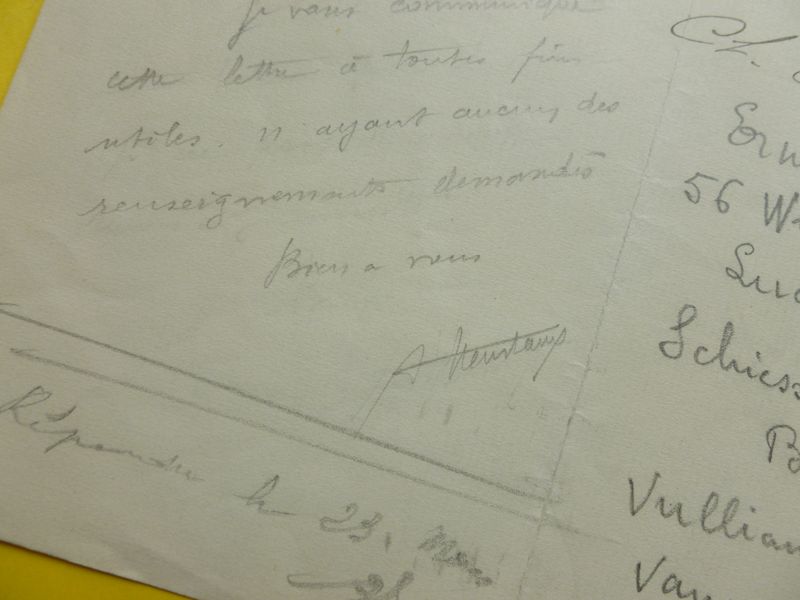 Je vous communique
cette lettre à toutes fins
utiles. n'ayant aucuns des
renseignements demandés
Bien a vous
Répondu le 23. Mars
28
Ern
56 W
Luc
Schiess
B
Vullian
Van